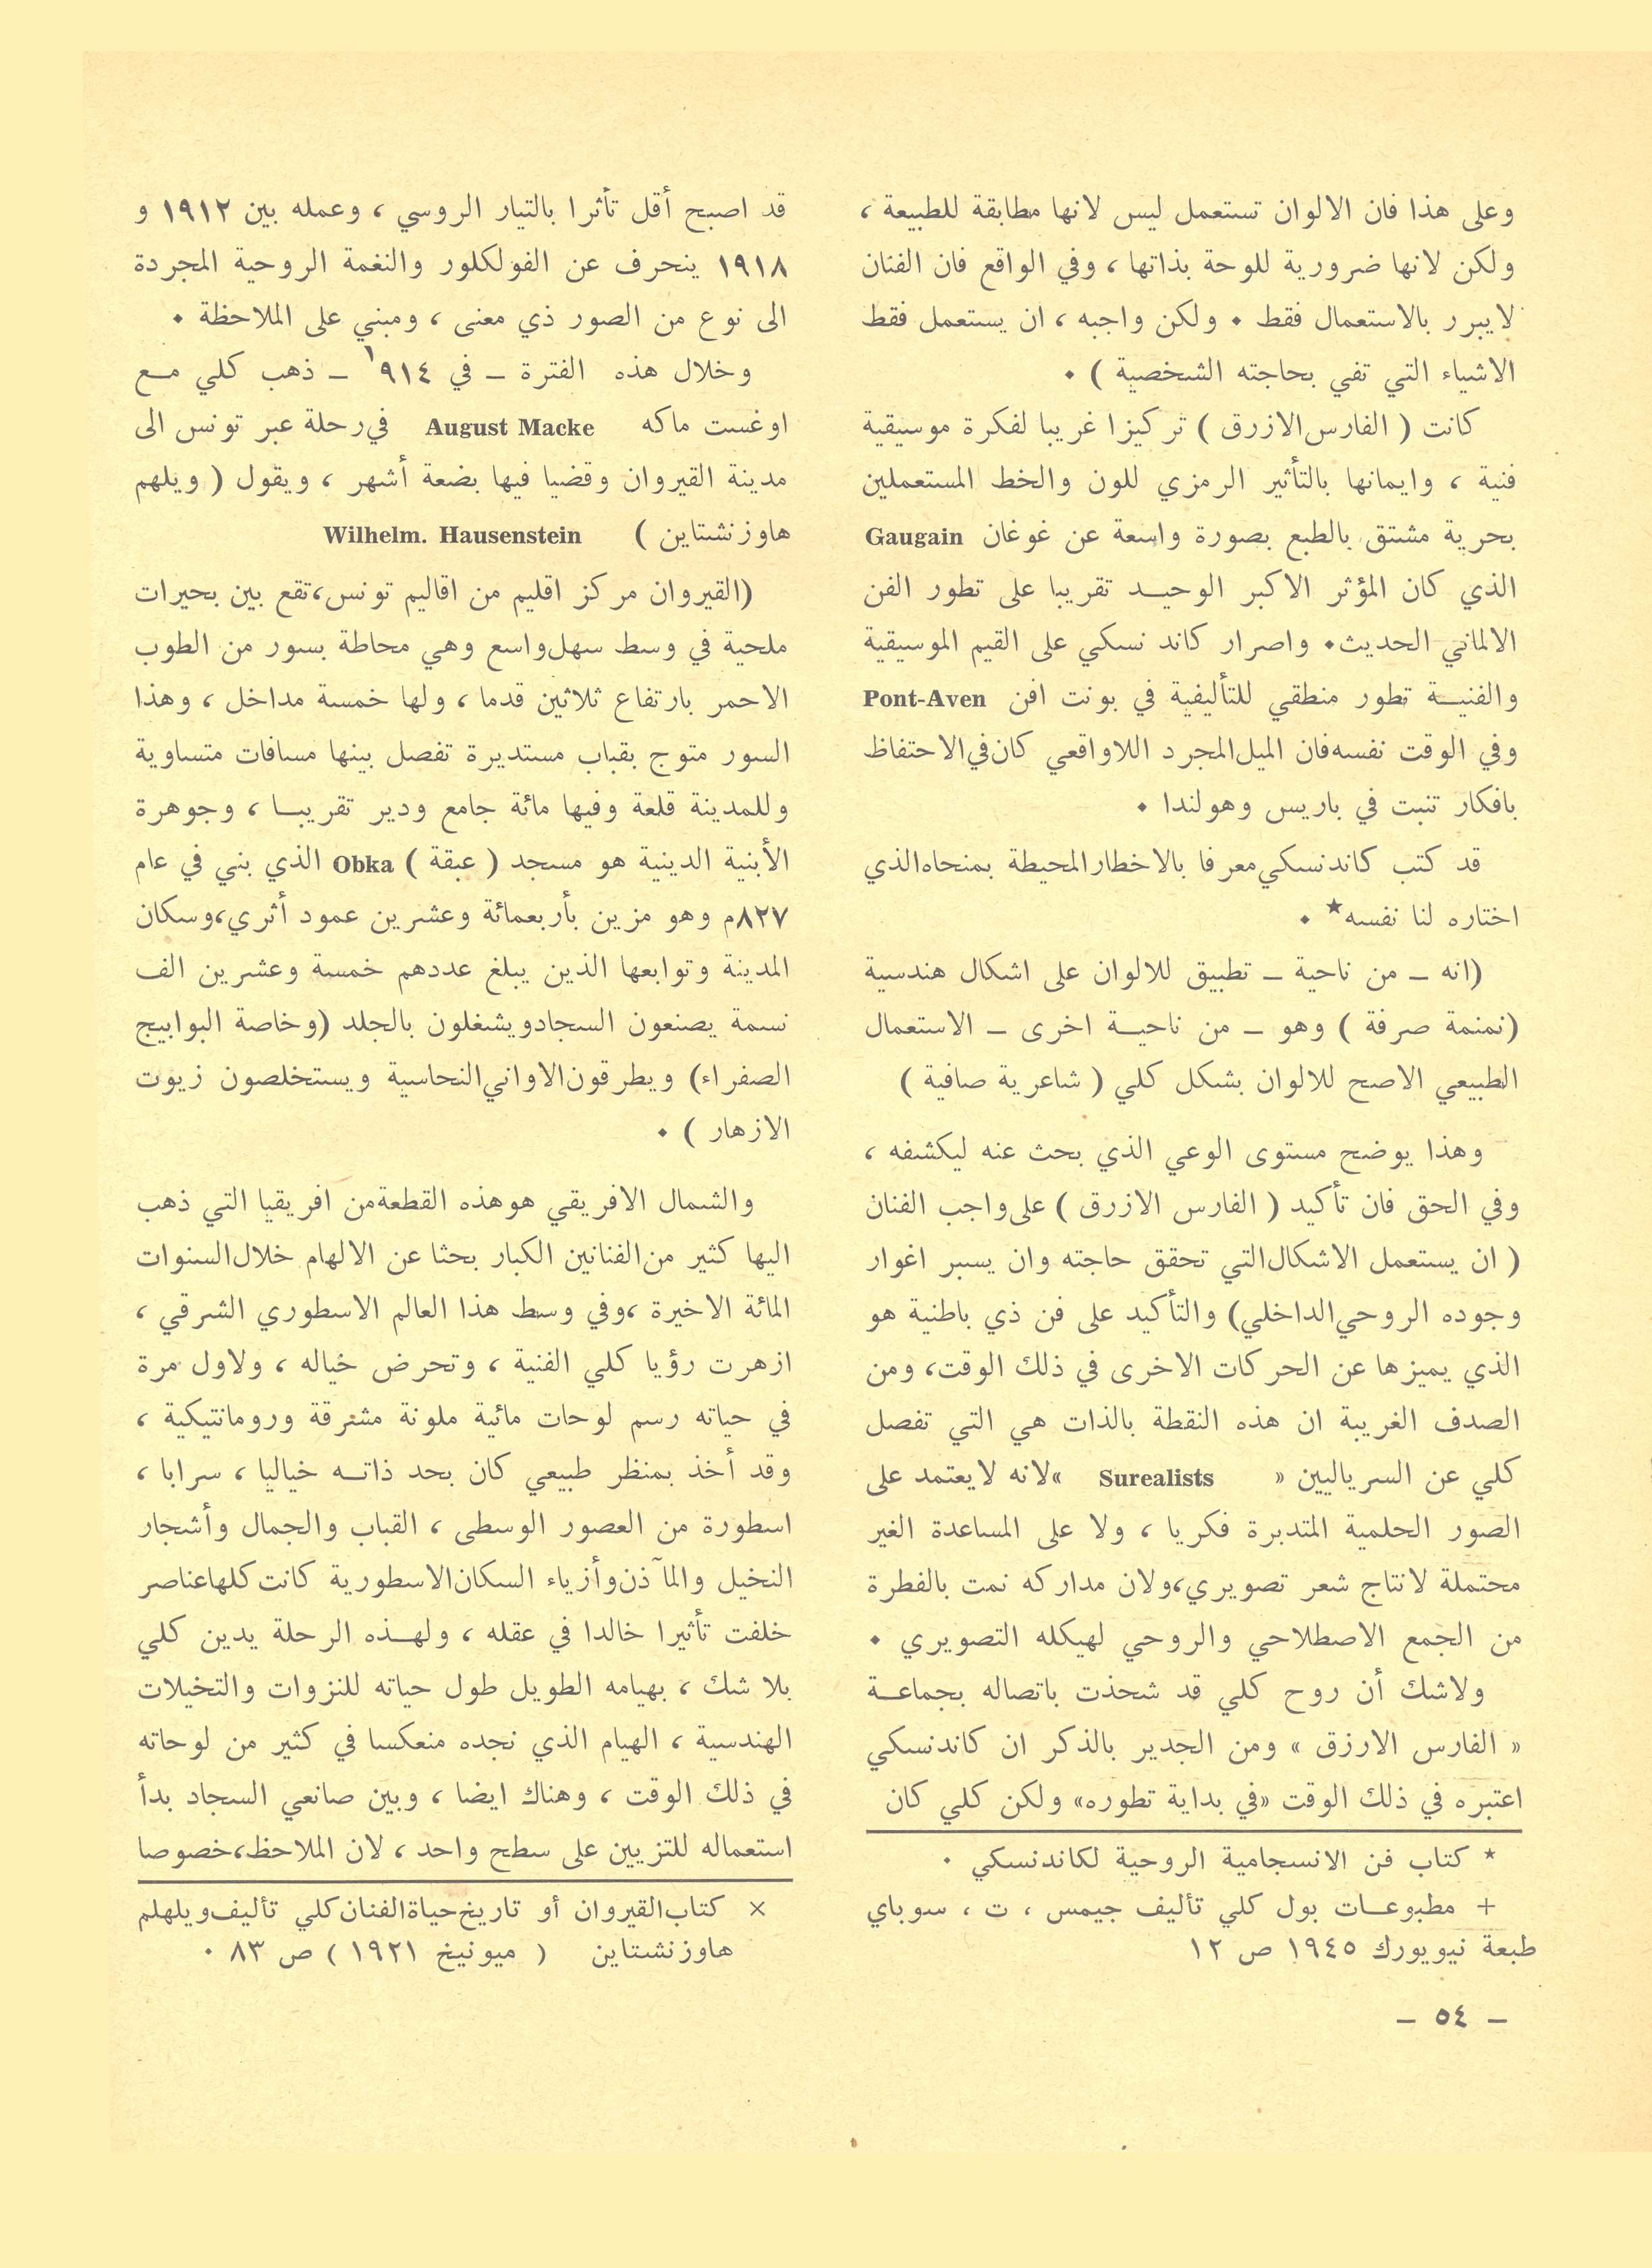 وعلى هذا فان الالوان تستعمل ليس لانها مطابقة للطبيعة ،
ولكن لانها ضرورية للوحة بذاتها ، وفي الواقع فان الفنان
لايبرر بالاستعمال فقط . ولكن واجبه ، ان يستعمل فقط
الاشياء التي تفي بحاجته الشخصية ) .
كانت ( الفارس الازرق ) تركيزا غريبا لفكرة موسيقية
فنية ، وايمانها بالتأثير الرمزي للون والخط المستعملين
بحرية مشتق بالطبع بصورة واسعة عن غوغان Gaugain
الذي كان المؤثر الاكبر الوحيد تقريبا على تطور الفن
الالماني الحديث. واصرار كاند نسكي على القيم الموسيقية
والفنية تطور منطقي للتأليفية في بونت افن Pont-Aven
وفي الوقت نفسه فان الميل المجرد اللاواقعي كان في الاحتفاظ
بافكار تنبت في باريس وهولندا .
قد كتب كاندنسكي معرفا بالاخطار المحيطة بمنحاه الذي
اختاره لنا نفسه* .
(انه ـ من ناحية ـ تطبيق للالوان على اشكال هندسية
(نمنمة صرفة ) وهو ـ من ناحية اخرى ـ الاستعمال
الطبيعي الاصح للالوان بشكل كلي ( شاعرية صافية )
وهذا يوضح مستوى الوعي الذي بحث عنه ليكشفه ،
وفي الحق فان تأكيد ( الفارس الازرق ) على واجب الفنان
( ان يستعمل الاشكال التي تحقق حاجته وان يسبر اغوار
وجوده الروحي الداخلي) والتأكيد على فن ذي باطنية هو
الذي يميزها عن الحركات الاخرى في ذلك الوقت، ومن
الصدف الغريبة ان هذه النقطة بالذات هي التي تفصل
كلي عن السرياليين « Surealists » لانه لايعتمد على
الصور الحلمية المتدبرة فكريا ، ولا على المساعدة الغير
محتملة لانتاج شعر تصويري، ولان مداركه نمت بالفطرة
من الجمع الاصطلاحي والروحي لهيكله التصويري .
ولاشك أن روح كلي قد شحذت باتصاله بجماعة
« الفارس الارزق » ومن الجدير بالذكر ان كاندنسكي
اعتبره في ذلك الوقت «في بداية تطوره» ولكن كلي كان
* كتاب فن الانسجامية الروحية لكاندنسكي .
+ مطبوعات بول كلي تأليف جيمس ، ت ، سوباي
طبعة نيويورك ١٩٤٥ ص ١٢
ـ ٥٤ ـ
قد اصبح أقل تأثرا بالتيار الروسي ، وعمله بين ١٩١٢ و
١٩١٨ ينحرف عن الفولكلور والنغمة الروحية المجردة
الى نوع من الصور ذي معنى ، ومبني على الملاحظة .
وخلال هذه الفترة ـ في ١٩١٤ ـ ذهب كلي مع
اوغست ماكه August Macke في رحلة عبر تونس الى
مدينة القيروان وقضيا فيها بضعة أشهر ، ويقول ( ويلهم
هاوزنشتاين ) Wilhelm. Hausenstein
(القيروان مركز اقليم من اقاليم تونس، تقع بين بحيرات
ملحية في وسط سهل واسع وهي محاطة بسور من الطوب
الاحمر بارتفاع ثلاثين قدما ، ولها خمسة مداخل ، وهذا
السور متوج بقباب مستديرة تفصل بينها مسافات متساوية
وللمدينة قلعة وفيها مائة جامع ودير تقريبا ، وجوهرة
الأبنية الدينية هو مسجد ( عبقة ) Obka الذي بني في عام
٨٢٧م وهو مزين بأربعمائة وعشرين عمود أثري، وسكان
المدينة وتوابعها الذين يبلغ عددهم خمسة وعشرين الف
نسمة يصنعون السجاد ويشغلون بالجلد (وخاصة البوابيج
الصفراء) ويطرقون الاواني النحاسية ويستخلصون زيوت
الازهار ) .
والشمال الافريقي هو هذه القطعة من افريقيا التي ذهب
اليها كثير من الفنانين الكبار بحثا عن الالهام خلال السنوات
المائة الاخيرة ، وفي وسط هذا العالم الاسطوري الشرقي ،
ازهرت رؤيا كلي الفنية ، وتحرض خياله ، ولاول مرة
في حياته رسم لوحات مائية ملونة مشرقة ورومانتيكية ،
وقد أخذ بمنظر طبيعي كان بحد ذاته خياليا ، سرابا ،
اسطورة من العصور الوسطى ، القباب والجمال وأشجار
النخيل والمآذن وأزياء السكان الاسطورية كانت كلها عناصر
خلفت تأثيرا خالدا في عقله ، ولهذه الرحلة يدين كلي
بلا شك ، بهيامه الطويل طول حياته للنزوات والتخيلات
الهندسية ، الهيام الذي نجده منعكسا في كثير من لوحاته
في ذلك الوقت ، وهناك ايضا ، وبين صانعي السجاد بدأ
استعماله للتزيين على سطح واحد ، لان الملاحظ، خصوصا
× كتاب القيروان أو تاريخ حياة الفنان كلي تأليف ويلهلم
هاوزنشتاين ( ميونيخ ١٩٢١ ) ص ٨٣ .